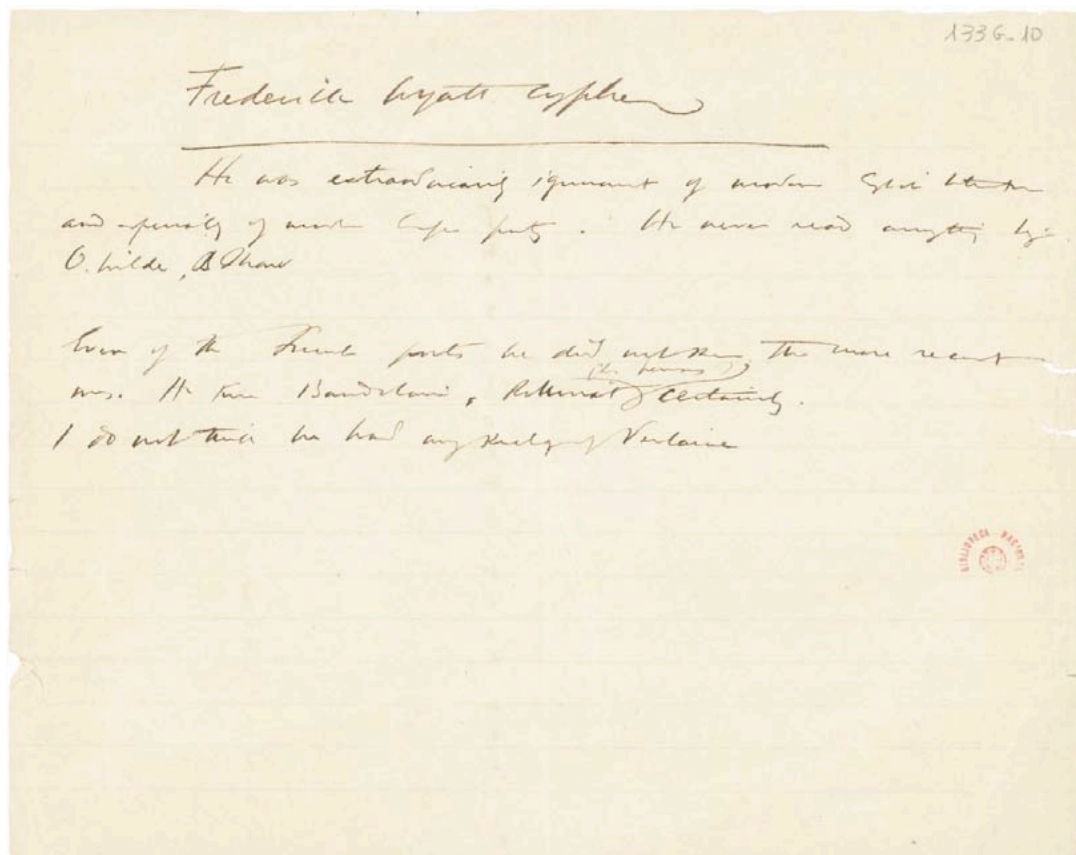 133G-10
Frederick Wyatt Cypher
He was extraordinarily ignorant of modern English literature
and especially of modern English poetry. He never read anything by
O. Wilde, B Shaw
Even of the French poets he did not know the more recent
ones. He knew Baudelaire, Rollinat certainly.
I do not think he had any knowledge of Verlaine
BIBLIOTECA NACIONAL